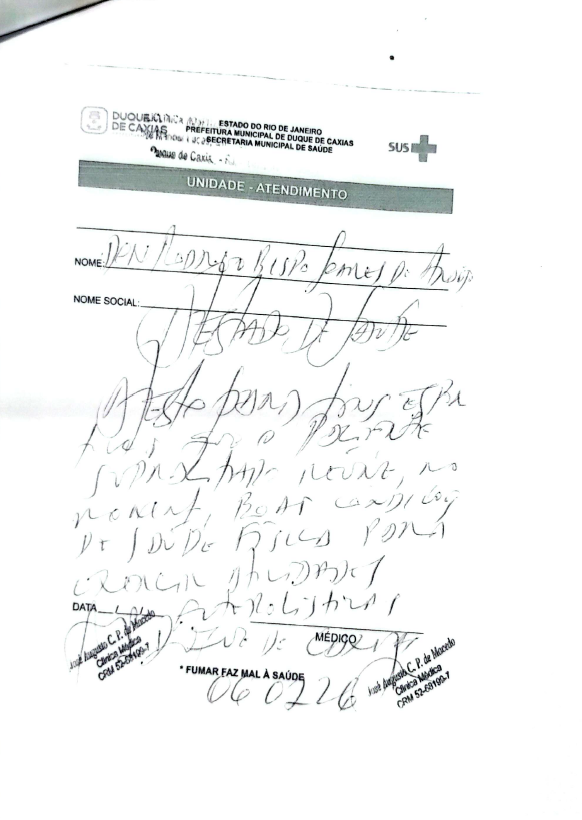 DUQUE
DE CAXIAS
ESTADO DO RIO DE JANEIRO
PREFEITURA MUNICIPAL DE DUQUE DE CAXIAS
SECRETARIA MUNICIPAL DE SAÚDE
Duque de Caxias - RJ
SUS
UNIDADE - ATENDIMENTO
NOME: Rodrigo Bispo Soares De
NOME SOCIAL:
ATESTADO DE SAÚDE
ATESTO PARA FINS
QUE O PACIENTE
SUPRACITADO REÚNE, NO
MOMENTO, BOAS CONDIÇÕES
DE SAÚDE FÍSICA PARA
EXERCER ATIVIDADES
DATA
Futebolísticas
MÉDICO
José Augusto C. P. de Macedo
Clínica Médica
CRM 52-68199-7
* FUMAR FAZ MAL À SAÚDE
060226
José Augusto C. P. de Macedo
Clínica Médica
CRM 52-68199-7